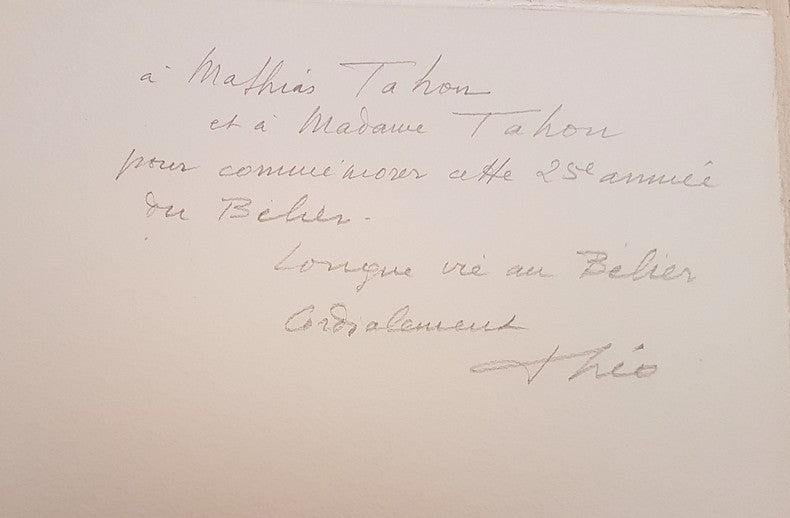 à Mathias Tahon
et à Madame Tahon
pour commémorer cette 25e année
du Bélier.
Longue vie au Bélier
Cordialement
Théo